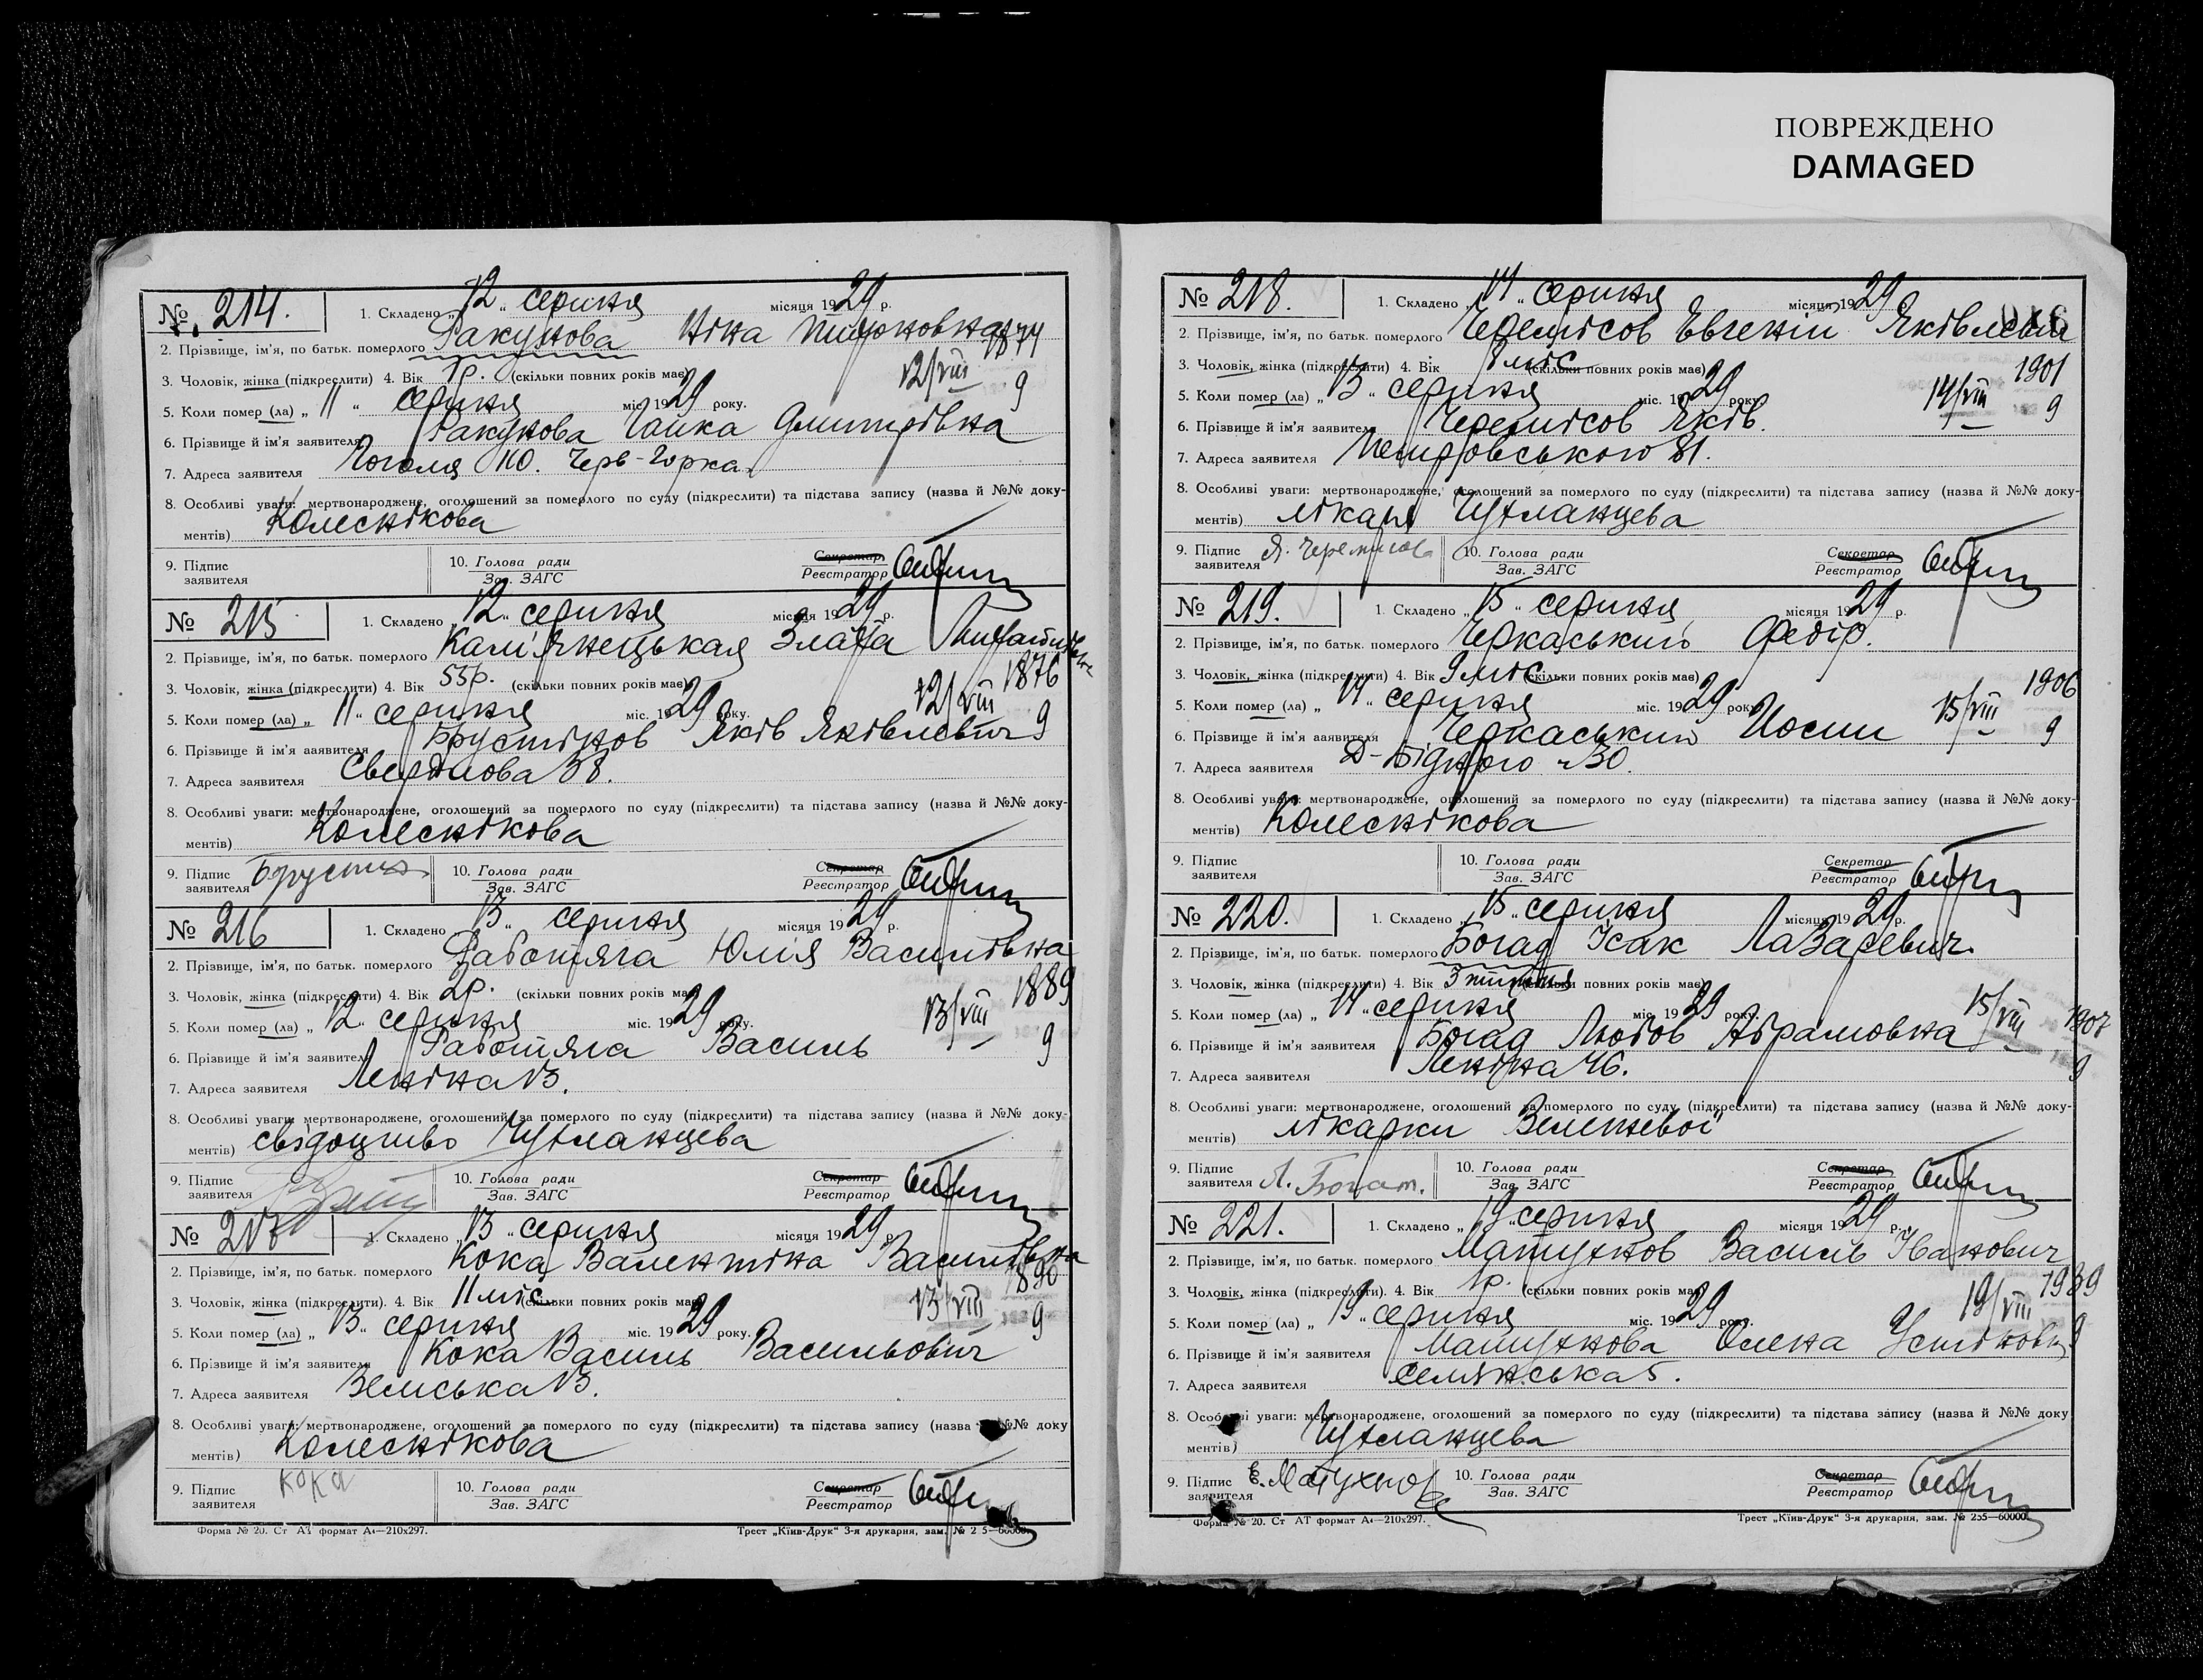 ПОВРЕЖДЕНО
DAMAGED
№ 214. 1. Складено „12“ серпня місяця 1929 р.
2. Прізвище, ім'я, по батьк. померлого Ракунова Ніна 1874
3. Чоловік, жінка (підкреслити) 4. Вік 1р. (скільки повних років має) 12/VIII
5. Коли помер (ла) „11“ серпня міс. 1929 року. 9
6. Прізвище й ім'я заявителя Ракунова Дмитрівна
7. Адреса заявителя Гоголя 110. Черв-Горка.
8. Особливі уваги: мертвонароджене, оголошений за померлого по суду (підкреслити) та підстава запису (назва й №№ доку-
ментів) Колеснікова
9. Підпис заявителя 10. Голова ради Зав. ЗАГС Секретар Реєстратор
№ 215 1. Складено „12“ серпня місяця 1929 р.
2. Прізвище, ім'я, по батьк. померлого Кам'янецькая Злата
3. Чоловік, жінка (підкреслити) 4. Вік 53р. (скільки повних років має) 1876
5. Коли помер (ла) „11“ серпня міс. 1929 року. 12/VIII
6. Прізвище й ім'я заявителя Брустінов Яків Яківлевич 9
7. Адреса заявителя Свердлова 38.
8. Особливі уваги: мертвонароджене, оголошений за померлого по суду (підкреслити) та підстава запису (назва й №№ доку-
ментів) Колеснікова
9. Підпис заявителя 10. Голова ради Зав. ЗАГС Секретар Реєстратор
№ 216 1. Складено „13“ серпня місяця 1929 р.
2. Прізвище, ім'я, по батьк. померлого Работяга Юлія Василівна
3. Чоловік, жінка (підкреслити) 4. Вік 2р. (скільки повних років має) 1889
5. Коли помер (ла) „12“ серпня міс. 1929 року. 13/VIII
6. Прізвище й ім'я заявителя Работяга Василь 9
7. Адреса заявителя Леніна 13.
8. Особливі уваги: мертвонароджене, оголошений за померлого по суду (підкреслити) та підстава запису (назва й №№ доку-
ментів) свідоцтво Чутланцева
9. Підпис заявителя 10. Голова ради Зав. ЗАГС Секретар Реєстратор
№ 217 1. Складено „13“ серпня місяця 1929 р.
2. Прізвище, ім'я, по батьк. померлого Кока Валентіна Василівна
3. Чоловік, жінка (підкреслити). 4. Вік 11 міс (скільки повних років має) 1890
5. Коли помер (ла) „13“ серпня міс. 1929 року. 13/VIII 9
6. Прізвище й ім'я заявителя Кока Василь Васильович
7. Адреса заявителя Земська 13.
8. Особливі уваги: мертвонароджене, оголошений за померлого по суду (підкреслити) та підстава запису (назва №№ доку
ментів) Колеснікова
9. Підпис заявителя Кока 10. Голова ради Зав. ЗАГС Секретар Реєстратор
Форма № 20. Ст АТ формат А4—210x297. Трест „Київ-Друк“ 3-я друкарня, зам. № 2 5—60000.
№ 218. 1. Складено „14“ серпня місяця 1929 р.
2. Прізвище, ім'я, по батьк. померлого Черемісов Евгеній Яківлевич
3. Чоловік, жінка (підкреслити) 4. Вік 8 міс (скільки повних років має) 1901
5. Коли помер (ла) „13“ серпня міс. 1929 року 14/VIII 9
6. Прізвище й ім'я заявителя Черемісов Яків.
7. Адреса заявителя Петровського 81.
8. Особливі уваги: мертвонароджене, оголошений за померлого по суду (підкреслити) та підстава запису (назва й №№ доку-
ментів) лікаря Чутланцева
9. Підпис заявителя Я. Черемисов 10. Голова ради Зав. ЗАГС Секретар Реєстратор
№ 219. 1. Складено „15“ серпня місяця 1929 р.
2. Прізвище, ім'я, по батьк. померлого Черкаський Федір.
3. Чоловік, жінка (підкреслити) 4. Вік 9 міс (скільки повних років має) 1906
5. Коли помер (ла) „14“ серпня міс. 1929 року 15/VIII
6. Прізвище й ім'я заявителя Черкаський Йосип 9
7. Адреса заявителя Д-Бідного 30.
8. Особливі уваги: мертвонароджене, оголошений за померлого по суду (підкреслити) та підстава запису (назва й №№ доку-
ментів) Колеснікова
9. Підпис заявителя 10. Голова ради Зав. ЗАГС Секретар Реєстратор
№ 220. 1. Складено „15“ серпня місяця 1929 р.
2. Прізвище, ім'я, по батьк. померлого Богад Ісак Лазаревич.
3. Чоловік, жінка (підкреслити) 4. Вік 3 тижня (скільки повних років має)
5. Коли помер (ла) „14“ серпня міс. 1929 року. 15/VIII 1907
6. Прізвище й ім'я заявителя Богад Любов Абрамовна
7. Адреса заявителя Леніна 46. 9
8. Особливі уваги: мертвонароджене, оголошений за померлого по суду (підкреслити) та підстава запису (назва й №№ доку-
ментів) лікарки Зеленевої
9. Підпис заявителя Л. Богат. 10. Голова ради Зав. ЗАГС Секретар Реєстратор
№ 221. 1. Складено „19“ серпня місяця 1929 р.
2. Прізвище, ім'я, по батьк. померлого Матухнов Василь Іванович
3. Чоловік, жінка (підкреслити). 4. Вік 1р. (скільки повних років має)
5. Коли помер (ла) „19“ серпня міс. 1929 року. 19/VIII
6. Прізвище й ім'я заявителя Матухнова Олена 9
7. Адреса заявителя Селянська 5.
8. Особливі уваги: мертвонароджене, оголошений за померлого по суду (підкреслити) та підстава запису (назва й №№ доку
ментів) Чутланцева
9. Підпис заявителя Е. Матухно 10. Голова ради Зав. ЗАГС Секретар Реєстратор
Форма № 20. Ст АТ формат А4—210x297. Трест „Київ-Друк“ 3-я друкарня, зам. № 255—60000